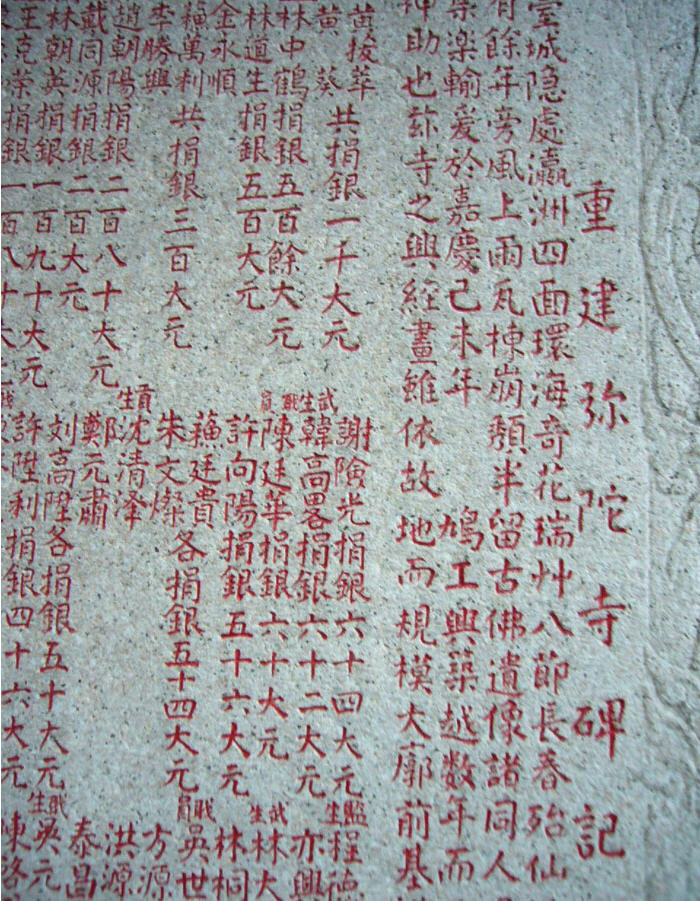 重建弥陀寺碑記
室城隐處瀛洲四面環海奇花瑞艸八節長春殆仙
有餘年旁風上雨瓦棟崩頹半留古佛遺像諸同人
樂輸爰於嘉慶己未年 鳩工興築越数年而
神助也茲寺之興經畫雖依故地而規模大廓前基
黃拔萃
黃葵 共捐銀一千大元
林中鶴捐銀五百餘大元
林道生捐銀五百大元
金永順
蘓萬利 共捐銀三百大元
李勝興
趙朝陽捐銀二百八十大元
戴同源捐銀二百大元
林朝英捐銀一百九十大元
王克荣捐銀一百八十大
謝險光捐銀六十四大元
武生韓高畧捐銀六十二大元
職員陳廷華捐銀六十大元
許向陽捐銀五十六大元
蘓廷貴
朱文燦 各捐銀五十四大元
貢生沈清泽
鄭元肅
刘高陞 各捐銀五十大元
許陞利捐銀四十六大元
監生程德
亦興
武生林大
林桐
職員吳世
方源
洪源
泰昌
職生吳元
陳洛